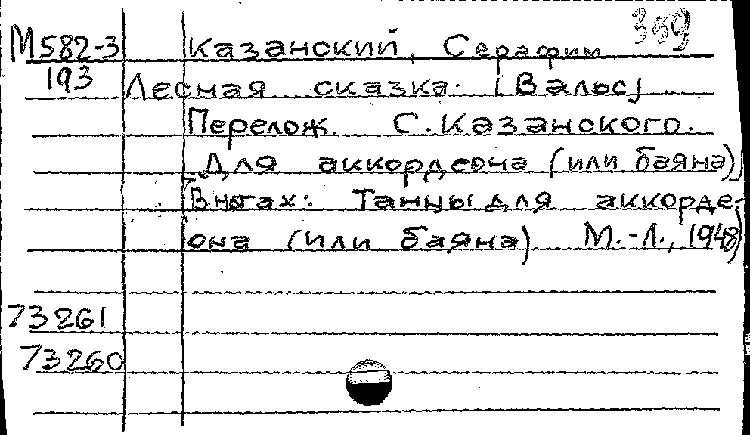 359
М582-3 Казанский, Серафим
193 Лесная сказка. [Вальс]
Перелож. С. Казанского.
Для аккордеона (или баяна)
В нотах: Танцы для аккорде-
она (или баяна) М.-Л., 1948
73261
73260